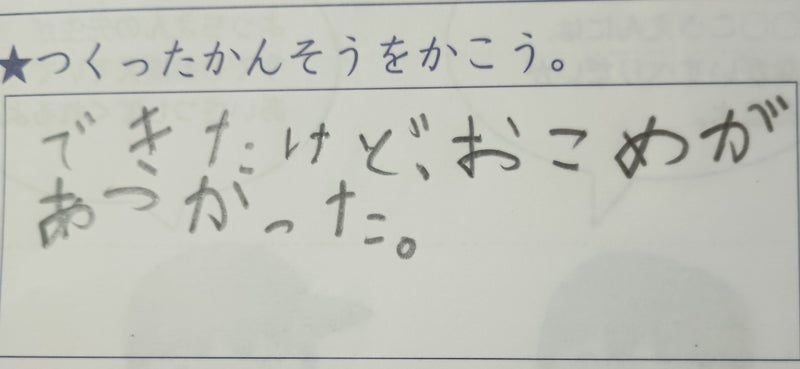 ★つくったかんそうをかこう。
できたけど、おこめが
あつがった。